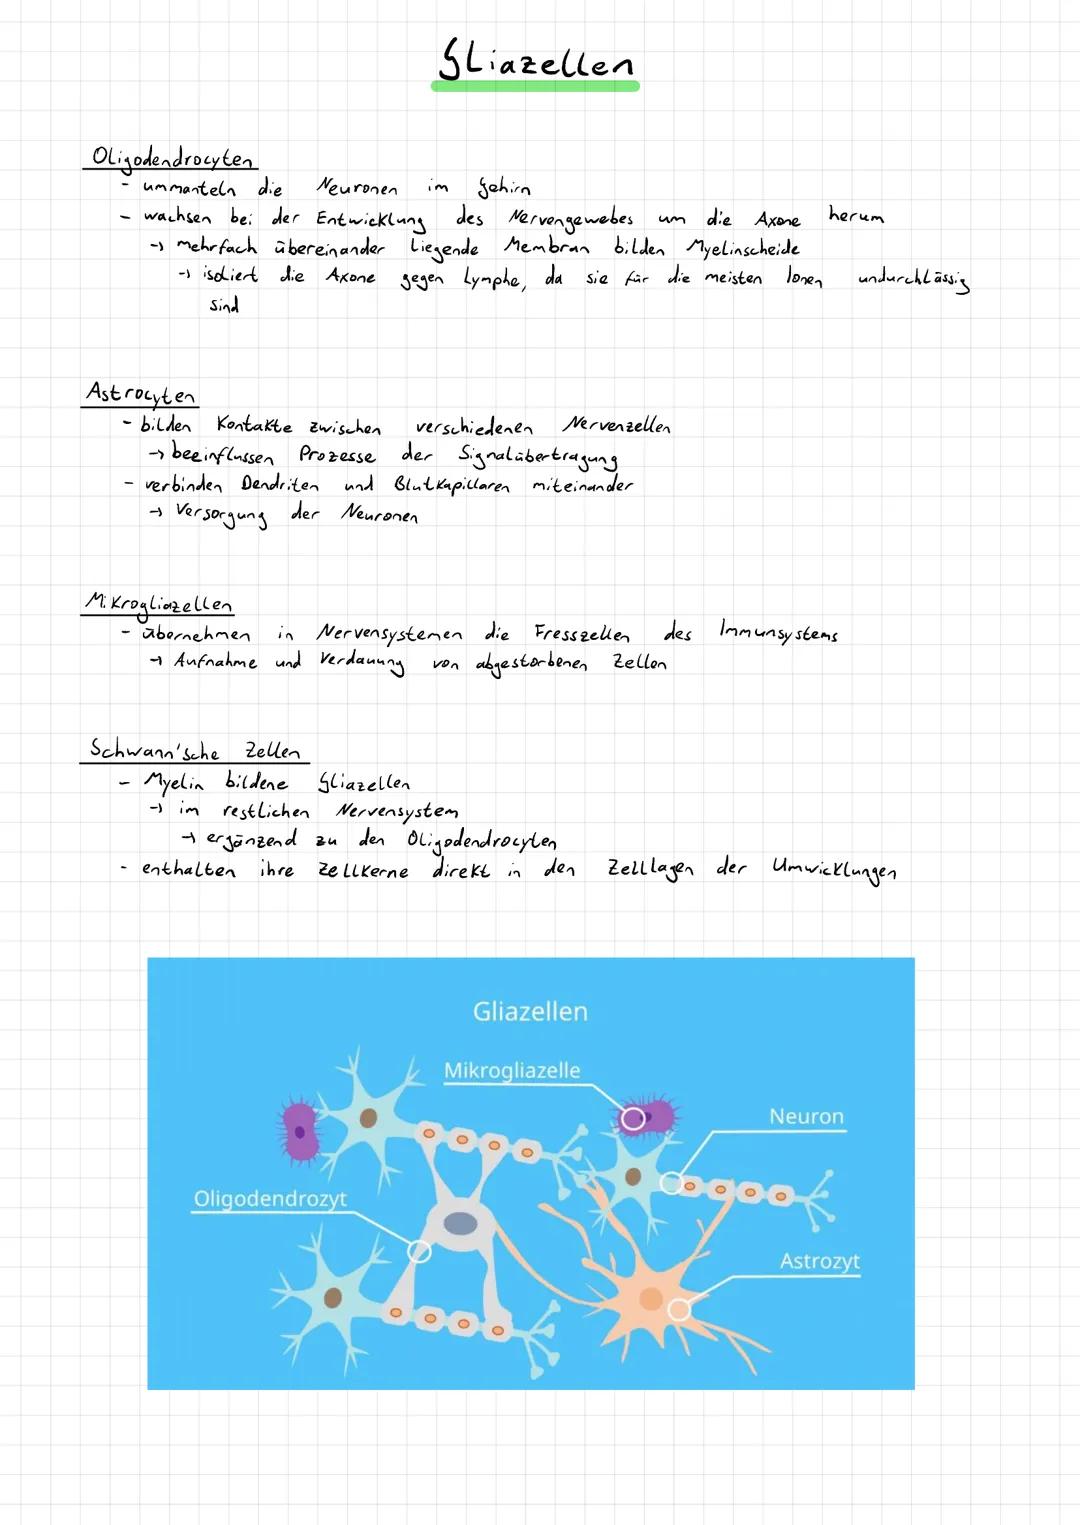 Gliazellen
Oligodendrocyten
- ummanteln die Neuronen im Gehirn
- wachsen bei der Entwicklung des Nervengewebes um die Axone herum
→ mehrfach übereinander liegende Membran bilden Myelinscheide
→ isoliert die Axone gegen Lymphe, da sie für die meisten Ionen undurchlässig
sind
Astrocyten
- bilden Kontakte zwischen verschiedenen Nervenzellen
→ beeinflussen Prozesse der Signalübertragung
- verbinden Dendriten und Blutkapillaren miteinander
→ Versorgung der Neuronen
Mikrogliazellen
- übernehmen in Nervensystemen die Fresszellen des Immunsystems
→ Aufnahme und Verdauung von abgestorbenen Zellen
Schwann'sche Zellen
- Myelin bildene Gliazellen
→ im restlichen Nervensystem
→ ergänzend zu den Oligodendrocyten
- enthalten ihre Zellkerne direkt in den Zelllagen der Umwicklungen
Gliazellen
Mikrogliazelle
Neuron
Oligodendrozyt
Astrozyt